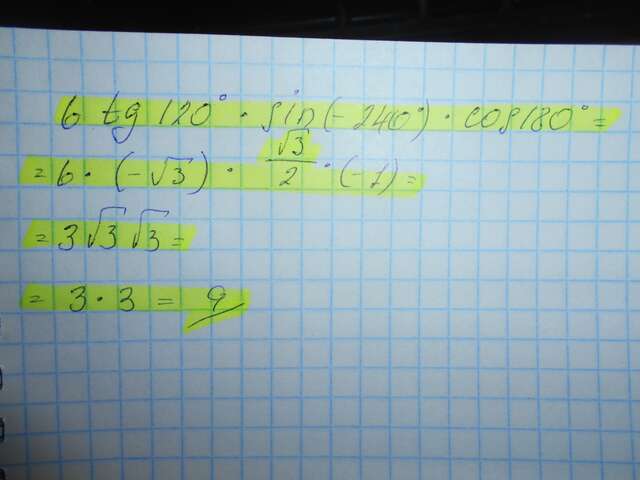 6 tg 120° · sin(-240°) · cos180° =
= 6 · (-√3) · √3/2 · (-1) =
= 3√3 √3 =
= 3 · 3 = 9